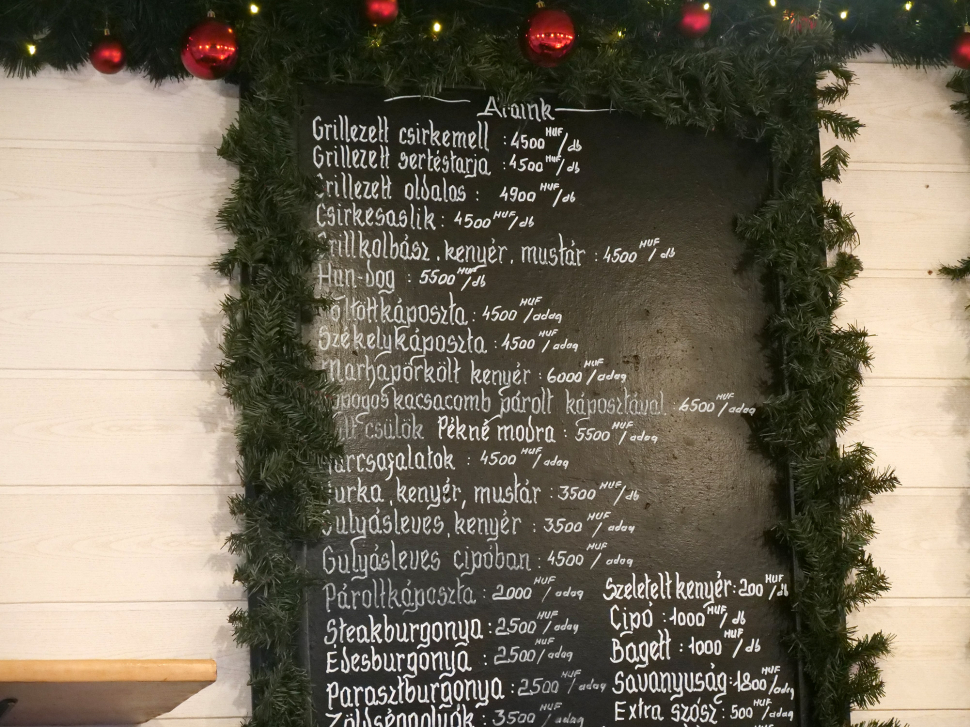 Áraink
Grillezett csirkemell : 4500 HUF/db
Grillezett sertéstarja : 4500 HUF/db
Grillezett oldalas : 4900 HUF/db
Csirkesaslik : 4500 HUF/db
Grillkolbász, kenyér, mustár : 4500 HUF/db
Hun-dog : 5500 HUF/db
Töltöttkáposzta : 4500 HUF/adag
Székelykáposzta : 4500 HUF/adag
Marhapörkölt kenyér : 6000 HUF/adag
Ropogós kacsacomb párolt káposztával : 6500 HUF/adag
csülök Pékné modra : 5500 HUF/adag
4500 HUF/adag
Hurka, kenyér, mustár : 3500 HUF/db
Gulyásleves, kenyér : 3500 HUF/adag
Gulyásleves cipóban : 4500 HUF/adag
Pároltkáposzta : 2000 HUF/adag
Steakburgonya : 2500 HUF/adag
Édesburgonya : 2500 HUF/adag
Parasztburgonya : 2500 HUF/adag
3500 HUF/adag
Szeletelt kenyér : 200 HUF/db
Cipó : 1000 HUF/db
Bagett : 1000 HUF/db
Savanyúság : 1800 HUF/adag
Extra szósz : 500 HUF/adag